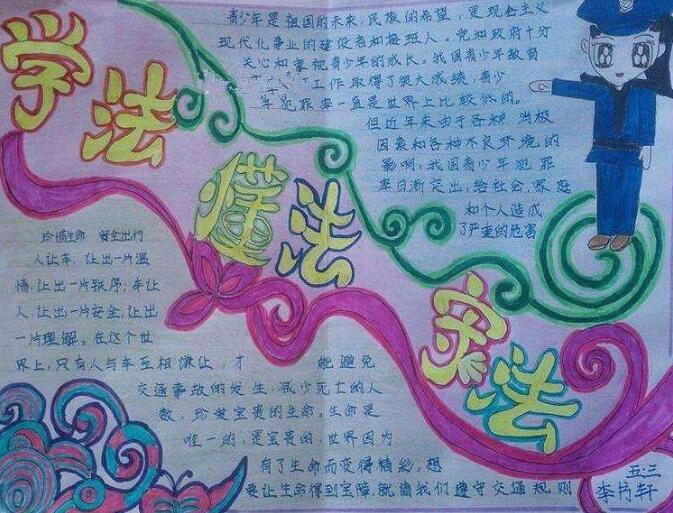 学法
懂法
守法
青少年是祖国的未来,民族的希望,是现会主义
现代化事业的建设者和接班人。党和政府十分
关心和重视青少年的成长。我国青少年教育
工作取得了很大成绩,青少
年犯罪率一直是世界上比较低的。
但近年来由于各种消极
因素和各种不良环境的
影响,我国青少年犯罪
率日渐突出,给社会、家庭
和个人造成
了严重的危害
珍惜生命 安全出行
人让车,让出一片温
情,让出一片秩序;车让
人,让出一片安全,让出
一片理解。在这个世
界上,只有人与车互相谦让,才 能避免
交通事故的发生,减少死亡的人
数,珍爱宝贵的生命。生命是
唯一的,是宝贵的,世界因为
有了生命而变得精彩,想
要让生命得到宝障,就请我们遵守交通规则
五.三
李书轩